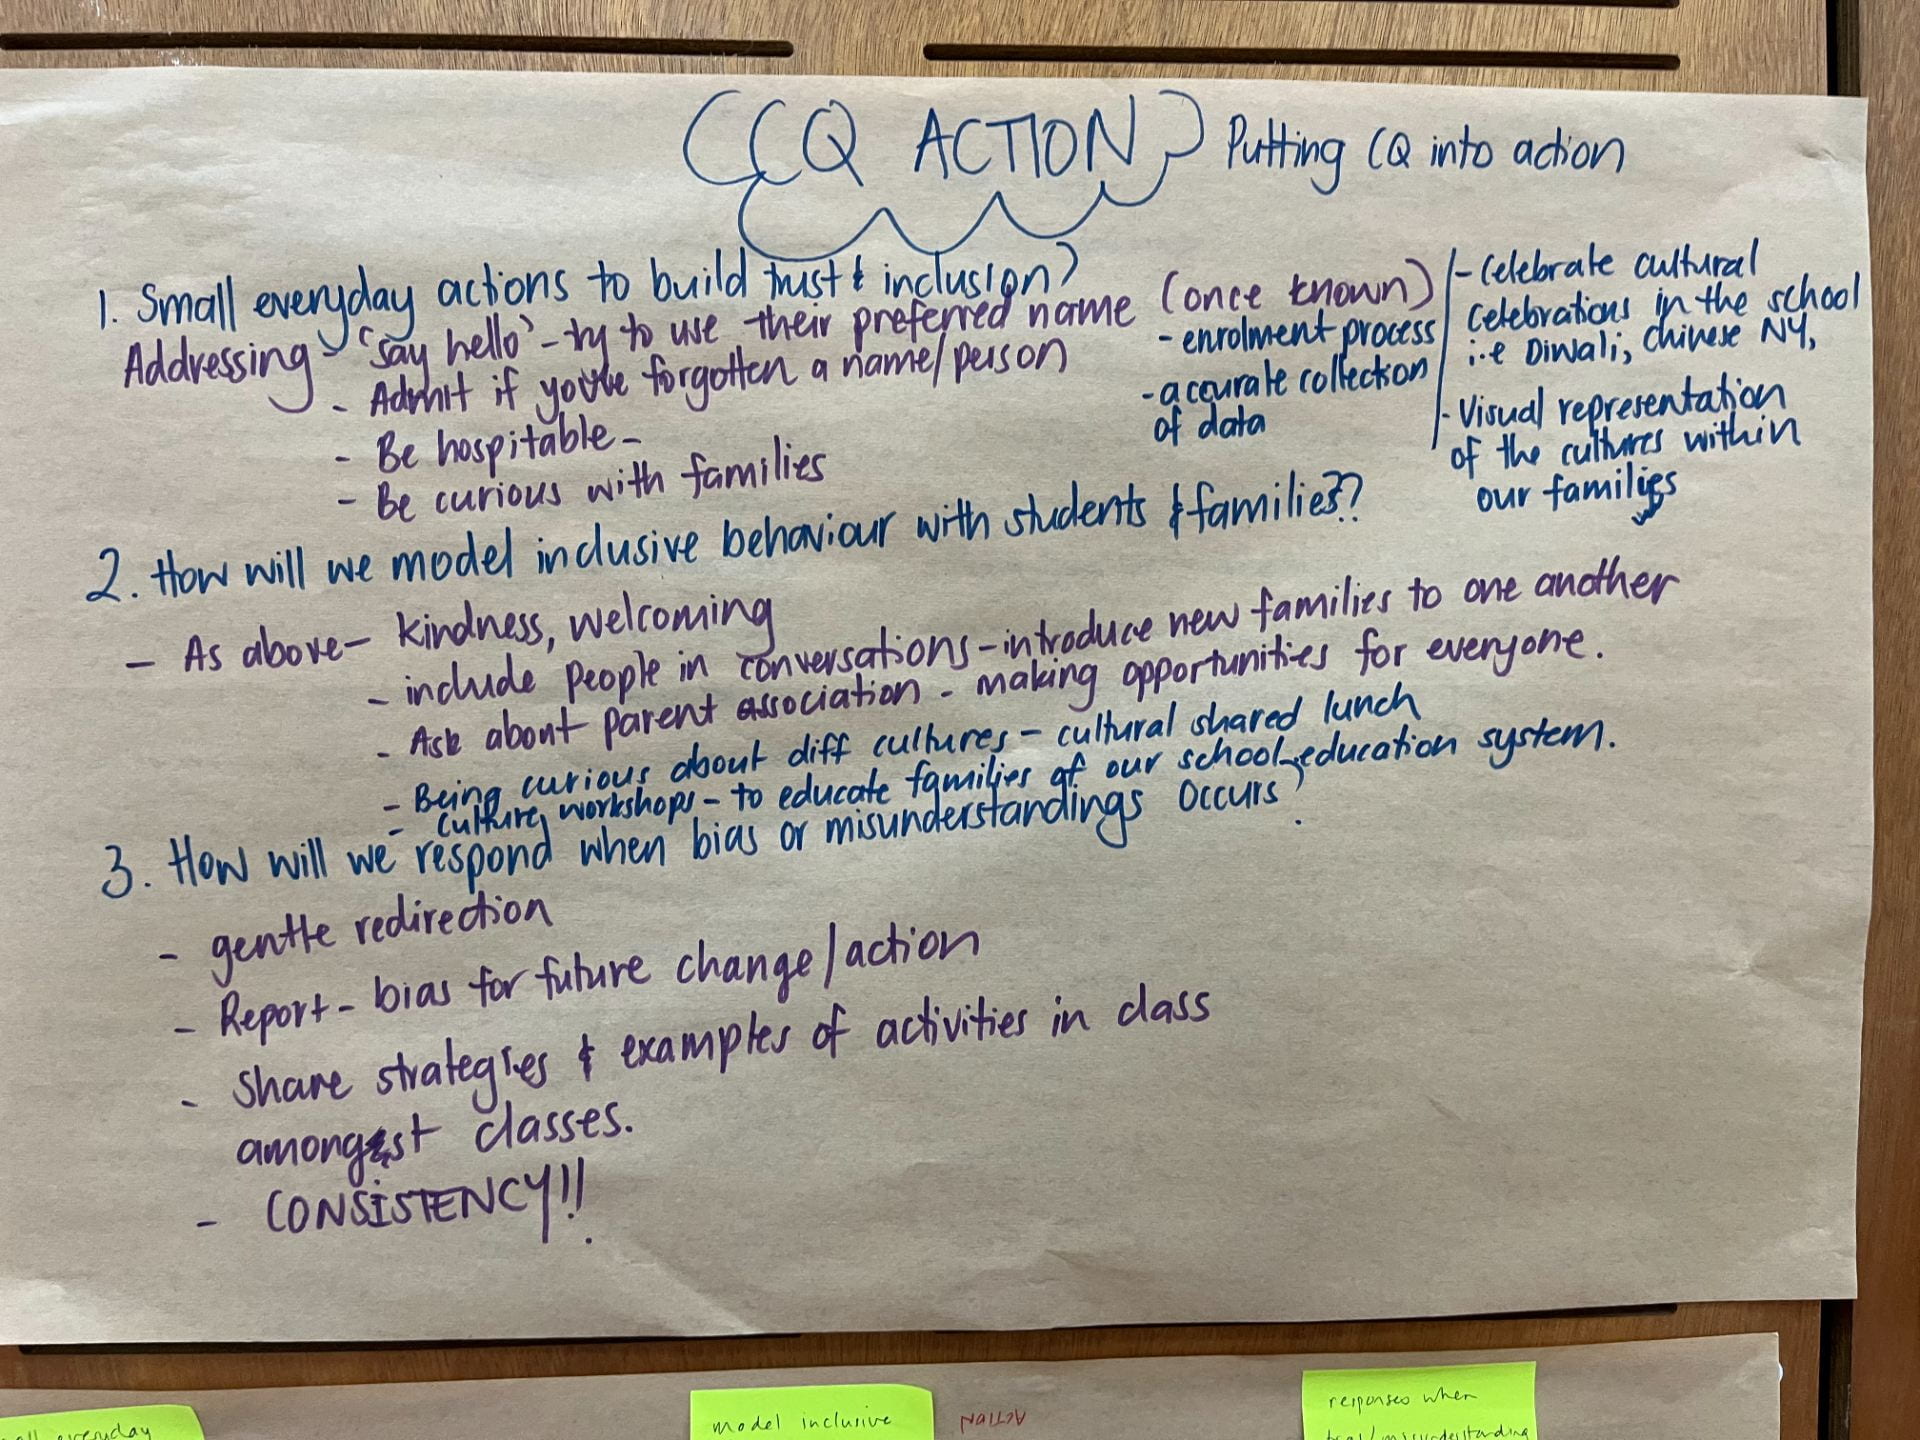 CQ ACTION
Putting CQ into action
1. Small everyday actions to build trust & inclusion?
Addressing - 'say hello' - try to use their preferred name (once known)
- Admit if you've forgotten a name/person
- Be hospitable -
- Be curious with families
- enrolment process
- accurate collection
of data
- Celebrate cultural
celebrations in the school
i.e Diwali, Chinese NY,
- Visual representation
of the cultures within
our families
2. How will we model inclusive behaviour with students & families??
- As above - kindness, welcoming
- include people in conversations - introduce new families to one another
- Ask about parent association - making opportunities for everyone.
- Being curious about diff cultures - cultural shared lunch
- culture workshops - to educate families of our school education system.
3. How will we respond when bias or misunderstandings occurs?
- gentle redirection
- Report - bias for future change/action
- Share strategies & examples of activities in class
amongst classes.
- CONSISTENCY!!
everyday
model inclusive
ACTION
responses when
bias/misunderstanding